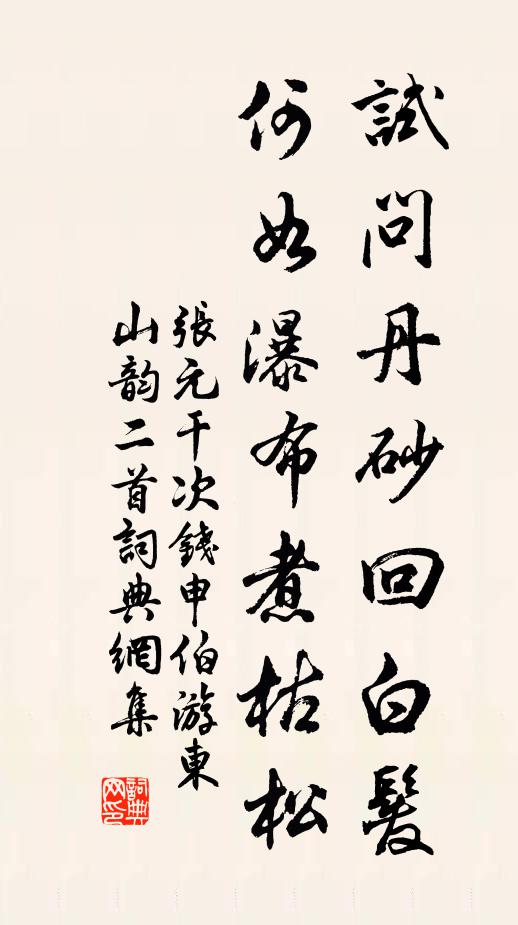 試問丹砂回白髮
何如瀑布煮枯松
張元干次錢申伯游東
山韵二首詞典網集
詞典
网印